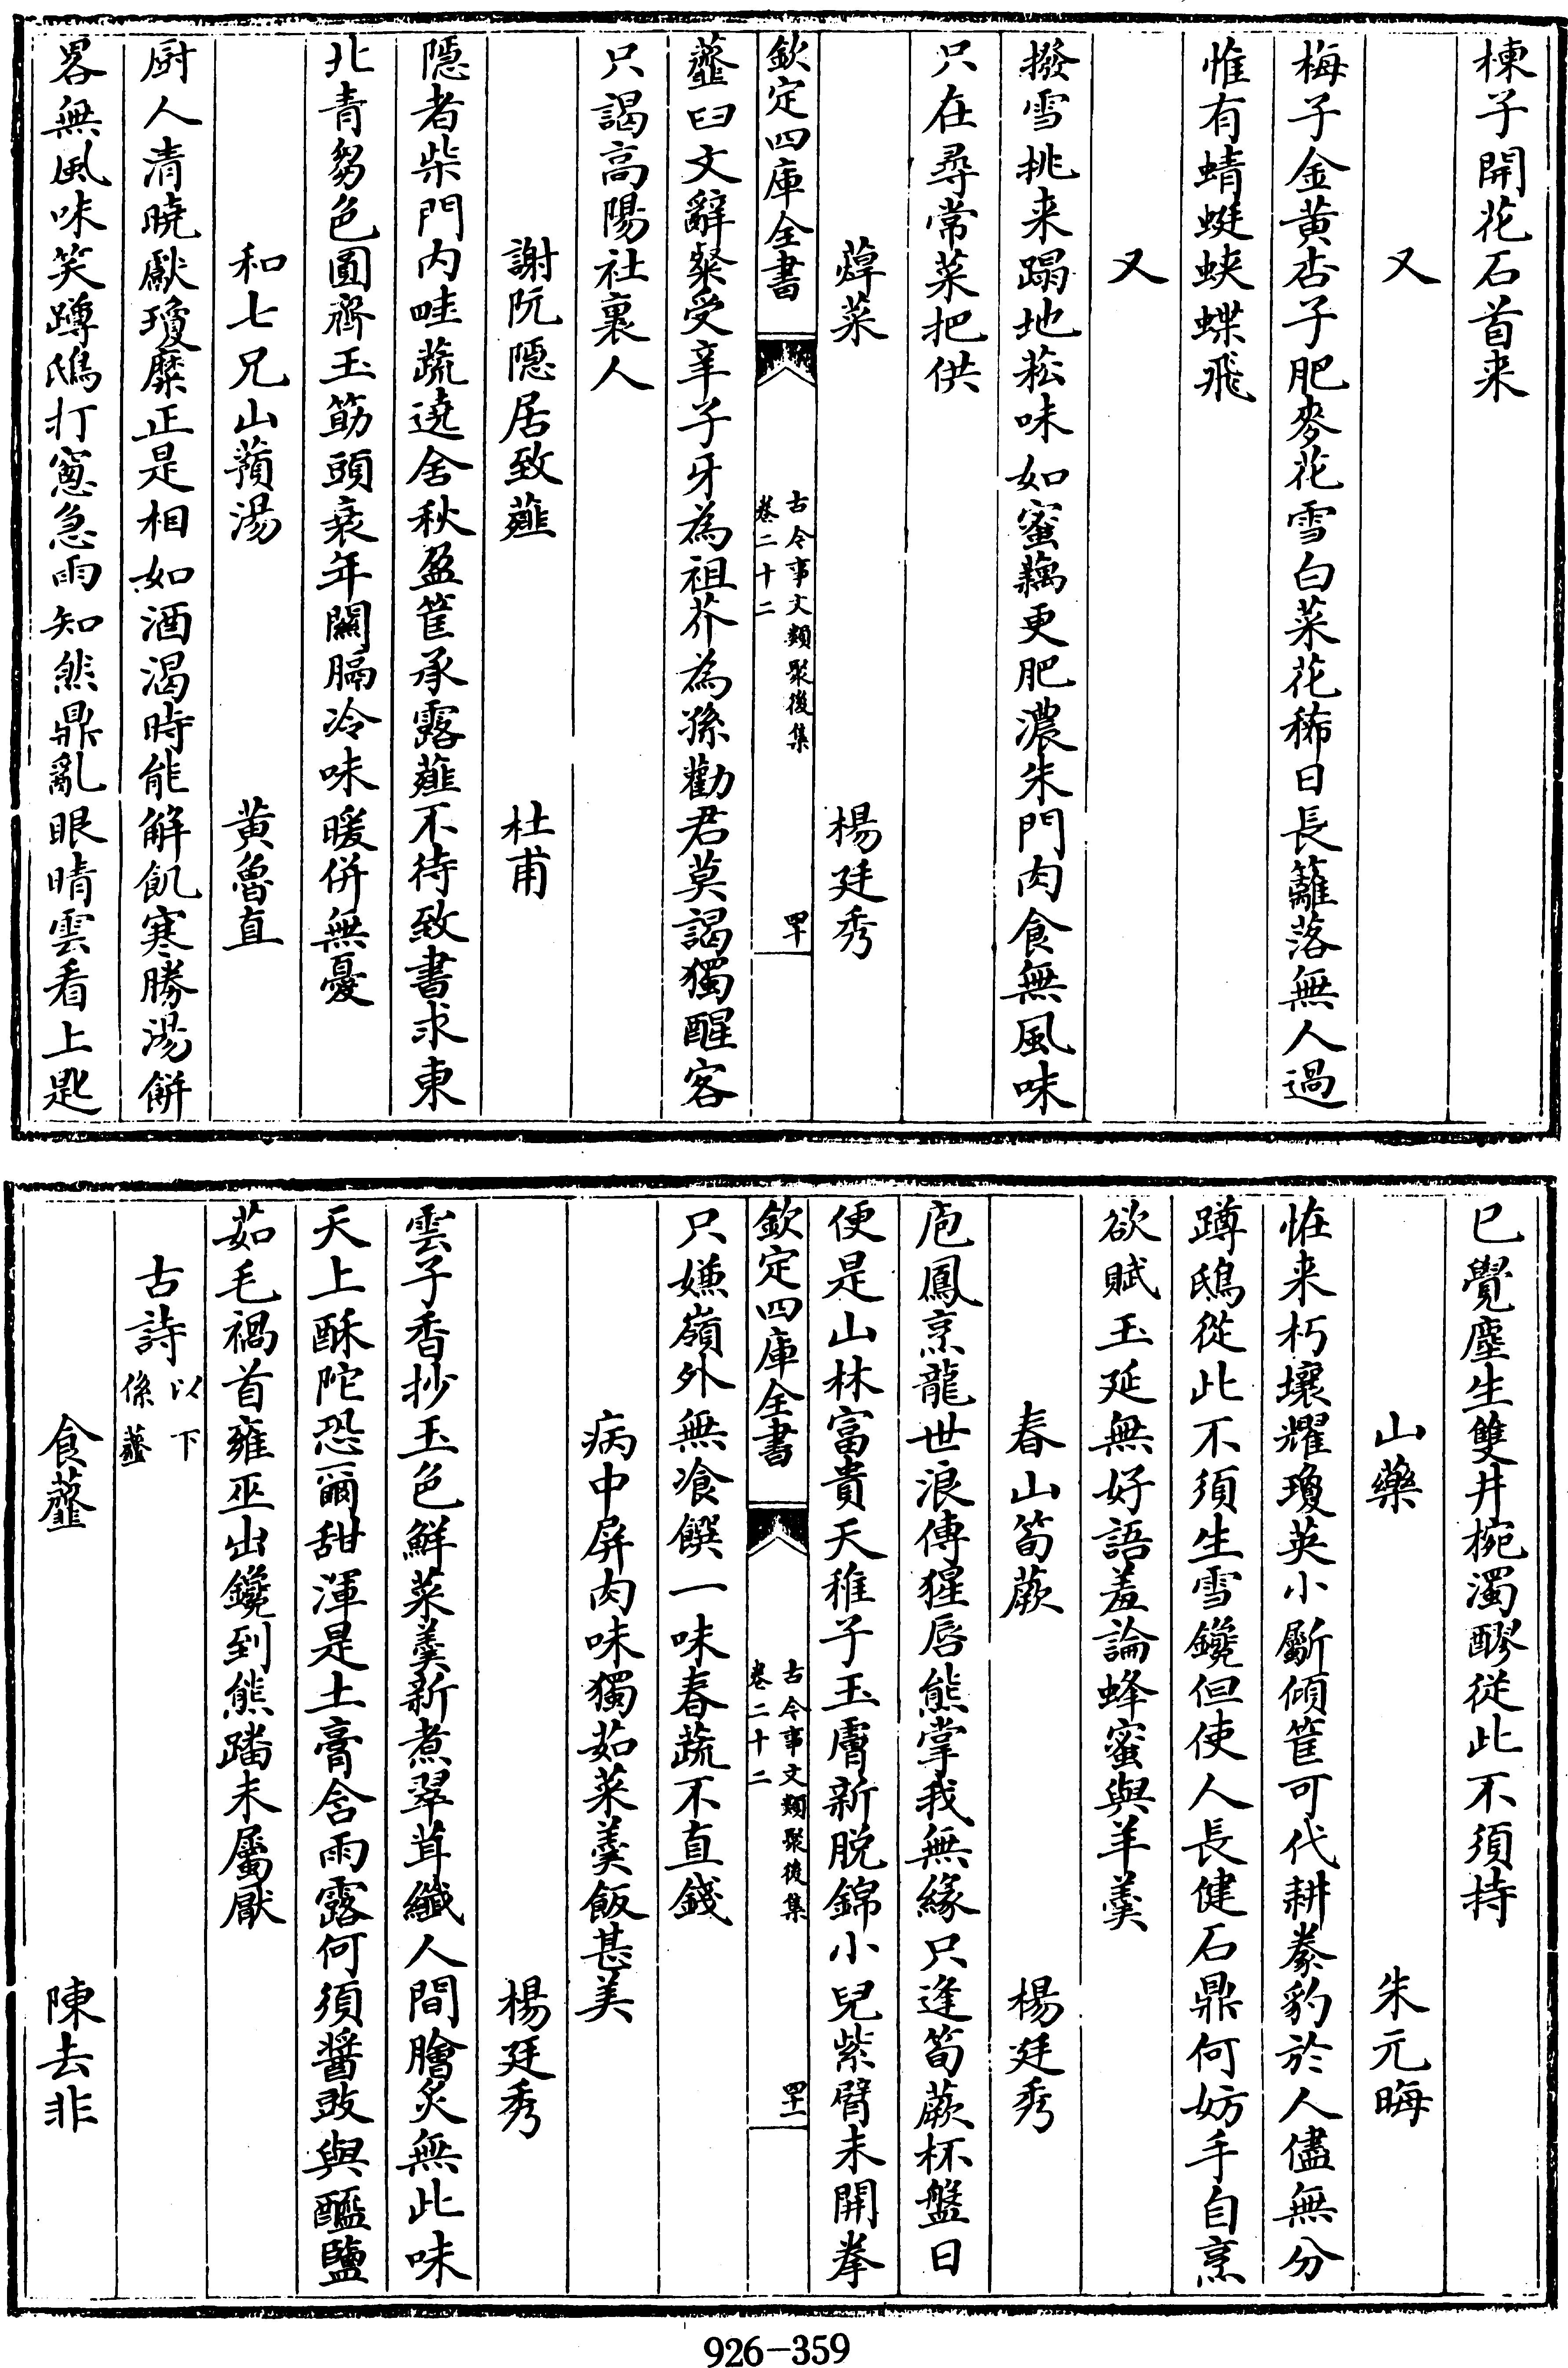 楝子開花石首来
又
梅子金黄杏子肥麥花雪白菜花稀日長籬落無人過
惟有蜻蜓蛺蝶飛
又
撥雪挑来蹋地菘味如蜜藕更肥濃朱門肉食無風味
只在尋常菜把供
薢菜　楊廷秀
欽定四庫全書　古今事文類聚後集　卷二十二　四十
虀臼文辭粲受辛子牙為祖芥為孫勸君莫謁獨醒客
只謁高陽社裏人
謝阮隱居致薤　杜甫
隱者柴門内畦蔬遶舍秋盈筐承露薤不待致書求東
北青芻色圓齊玉筯頭衰年關膈冷味暖併無憂
和七兄山蕷湯　黄魯直
厨人清曉獻瓊糜正是相如酒渴時能解飢寒勝湯餅
畧無風味笑蹲鴟打窻急雨知然鼎亂眼晴雲看上匙
已覺塵生雙井椀濁醪從此不須持
山藥　朱元晦
恠来朽壤耀瓊英小斸傾筐可代耕豢豹於人儘無分
蹲鴟從此不須生雪鑱但使人長健石鼎何妨手自烹
欲賦玉延無好語羞論蜂蜜與羊羮
春山筍蕨　楊廷秀
庖鳳烹龍世浪傳猩唇熊掌我無緣只逢筍蕨杯盤日
便是山林富貴天稚子玉膚新脱錦小兒紫臂未開拳
欽定四庫全書　古今事文類聚後集　卷二十二　四十一
只嫌嶺外無飡饌一味春蔬不直錢
病中屏肉味獨茹菜羮飯甚美
楊廷秀
雲子香抄玉色鮮菜羮新煮翠茸纎人間膾炙無此味
天上酥陀恐爾甜渾是土膏含雨露何須醬豉與醯鹽
茹毛禍首雍巫出鑱到熊蹯未屬厭
古詩以下係虀
食虀　陳去非
926-359